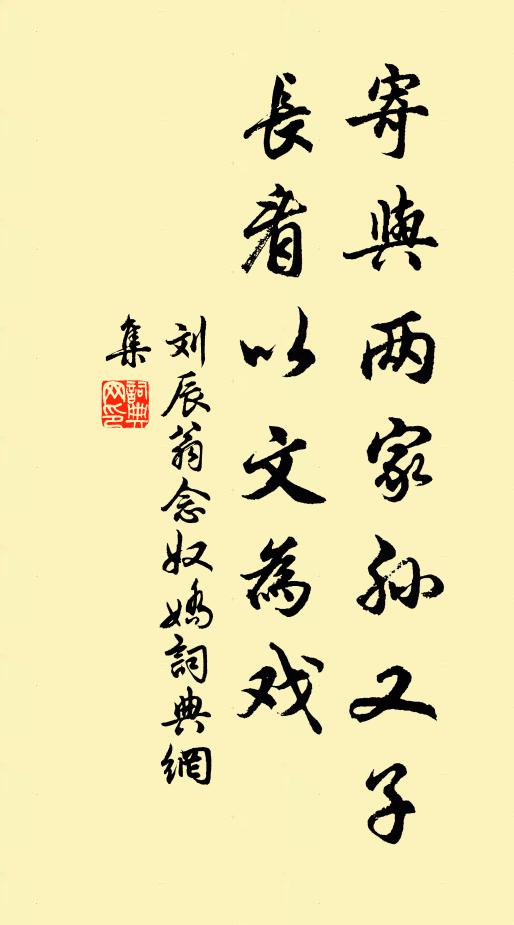 寄與两家孙又子
長看以文為戏
刘辰翁念奴嬌詞典網
集
詞典网印